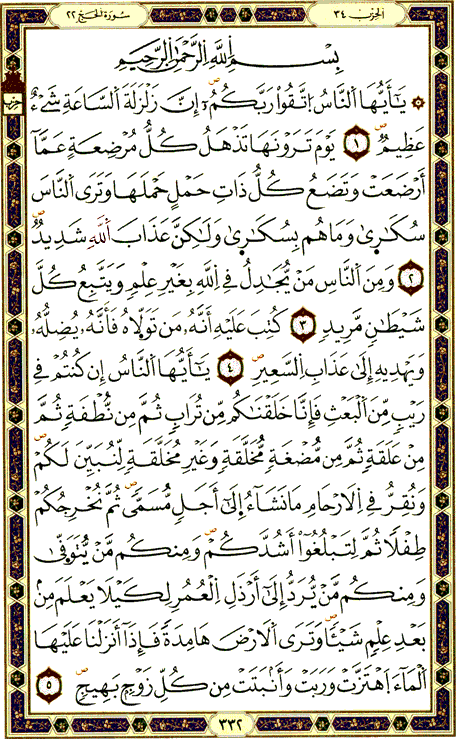 الحزب ٣٤
سورة الحج ٢٢
حزب
بِسْمِ اللَّهِ الرَّحْمَٰنِ الرَّحِيمِ
۞ يَٰٓأَيُّهَا اَلنَّاسُ اُتَّقُواْ رَبَّكُمُۥٓ إِنَّ زَلْزَلَةَ اَلسَّاعَةِ شَےْءٌ
عَظِيمٞ ١ يَوْمَ تَرَوْنَهَا تَذْهَلُ كُلُّ مُرْضِعَةٍ عَمَّآ
أَرْضَعَتْ وَتَضَعُ كُلُّ ذَاتِ حَمْلٍ حَمْلَهَا وَتَرَى اَلنَّاسَ
سُكَٰرَىٰ وَمَا هُم بِسُكَٰرَىٰ وَلَٰكِنَّ عَذَابَ اَللَّهِ شَدِيدٞ
٢ وَمِنَ اَلنَّاسِ مَنْ يُّجَٰدِلُ فِے اِللَّهِ بِغَيْرِ عِلْمٖ وَيَتَّبِعُ كُلَّ
شَيْطَٰنٖ مَّرِيدٖ ٣ كُتِبَ عَلَيْهِ أَنَّهُۥ مَن تَوَلَّاهُ فَأَنَّهُۥ يُضِلُّهُۥ
وَيَهْدِيهِ إِلَىٰ عَذَابِ اِلسَّعِيرِ ٤ يَٰٓأَيُّهَا اَلنَّاسُ إِن كُنتُمْ فِے
رَيْبٖ مِّنَ اَلْبَعْثِ فَإِنَّا خَلَقْنَٰكُم مِّن تُرَابٖ ثُمَّ مِن نُّطْفَةٖ ثُمَّ
مِنْ عَلَقَةٖ ثُمَّ مِن مُّضْغَةٖ مُّخَلَّقَةٖ وَغَيْرِ مُخَلَّقَةٖ لِّنُبَيِّنَ لَكُمْ
وَنُقِرُّ فِے اِلَارْحَامِ مَا نَشَآءُ إِلَىٰٓ أَجَلٖ مُّسَمّٗى ثُمَّ نُخْرِجُكُمْ
طِفْلٗا ثُمَّ لِتَبْلُغُوٓاْ أَشُدَّكُمْ وَمِنكُم مَّنْ يُّتَوَفَّىٰ
وَمِنكُم مَّنْ يُّرَدُّ إِلَىٰٓ أَرْذَلِ اِلْعُمُرِ لِكَيْلَا يَعْلَمَ مِنۢ
بَعْدِ عِلْمٖ شَيْـٔٗا وَتَرَى اَلَارْضَ هَامِدَةٗ فَإِذَآ أَنزَلْنَا عَلَيْهَا
اَلْمَآءَ اَهْتَزَّتْ وَرَبَتْ وَأَنۢبَتَتْ مِن كُلِّ زَوْجِۭ بَهِيجٖ ٥
٣٣٢